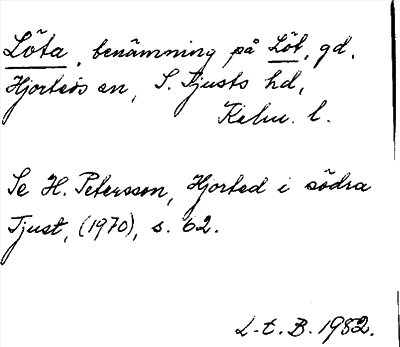 Löta, benämning på Löt, gd.
Hjorteds sn, S. Tjusts hd,
Kalm. l.
Se H. Petersson, Hjorted i södra
Tjust, (1970), s. 62.
L-t. B. 1982.